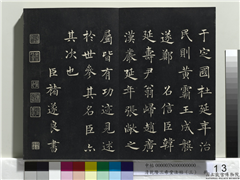 于定國杜延年治
民則黃霸王成龔
遂鄭 召信臣韓
延壽尹翁歸趙廣
漢嚴延年張敞之
屬皆有功迹見述
於世參其名臣亦
其次也
臣褚遂良書
13